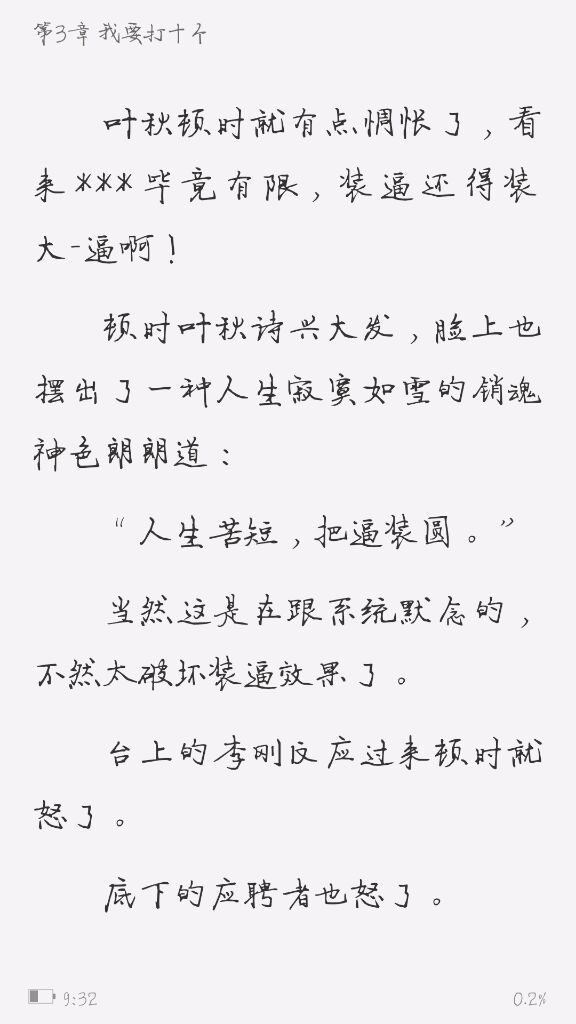 第3章 我要打十个
叶秋顿时就有点惆怅了，看
来***毕竟有限，装逼还得装
大-逼啊！
顿时叶秋诗兴大发，脸上也
摆出了一种人生寂寞如雪的销魂
神色朗朗道：
“人生苦短，把逼装圆。”
当然这是在跟系统默念的，
不然太破坏装逼效果了。
台上的李刚反应过来顿时就
怒了。
底下的应聘者也怒了。
9:32
0.2%